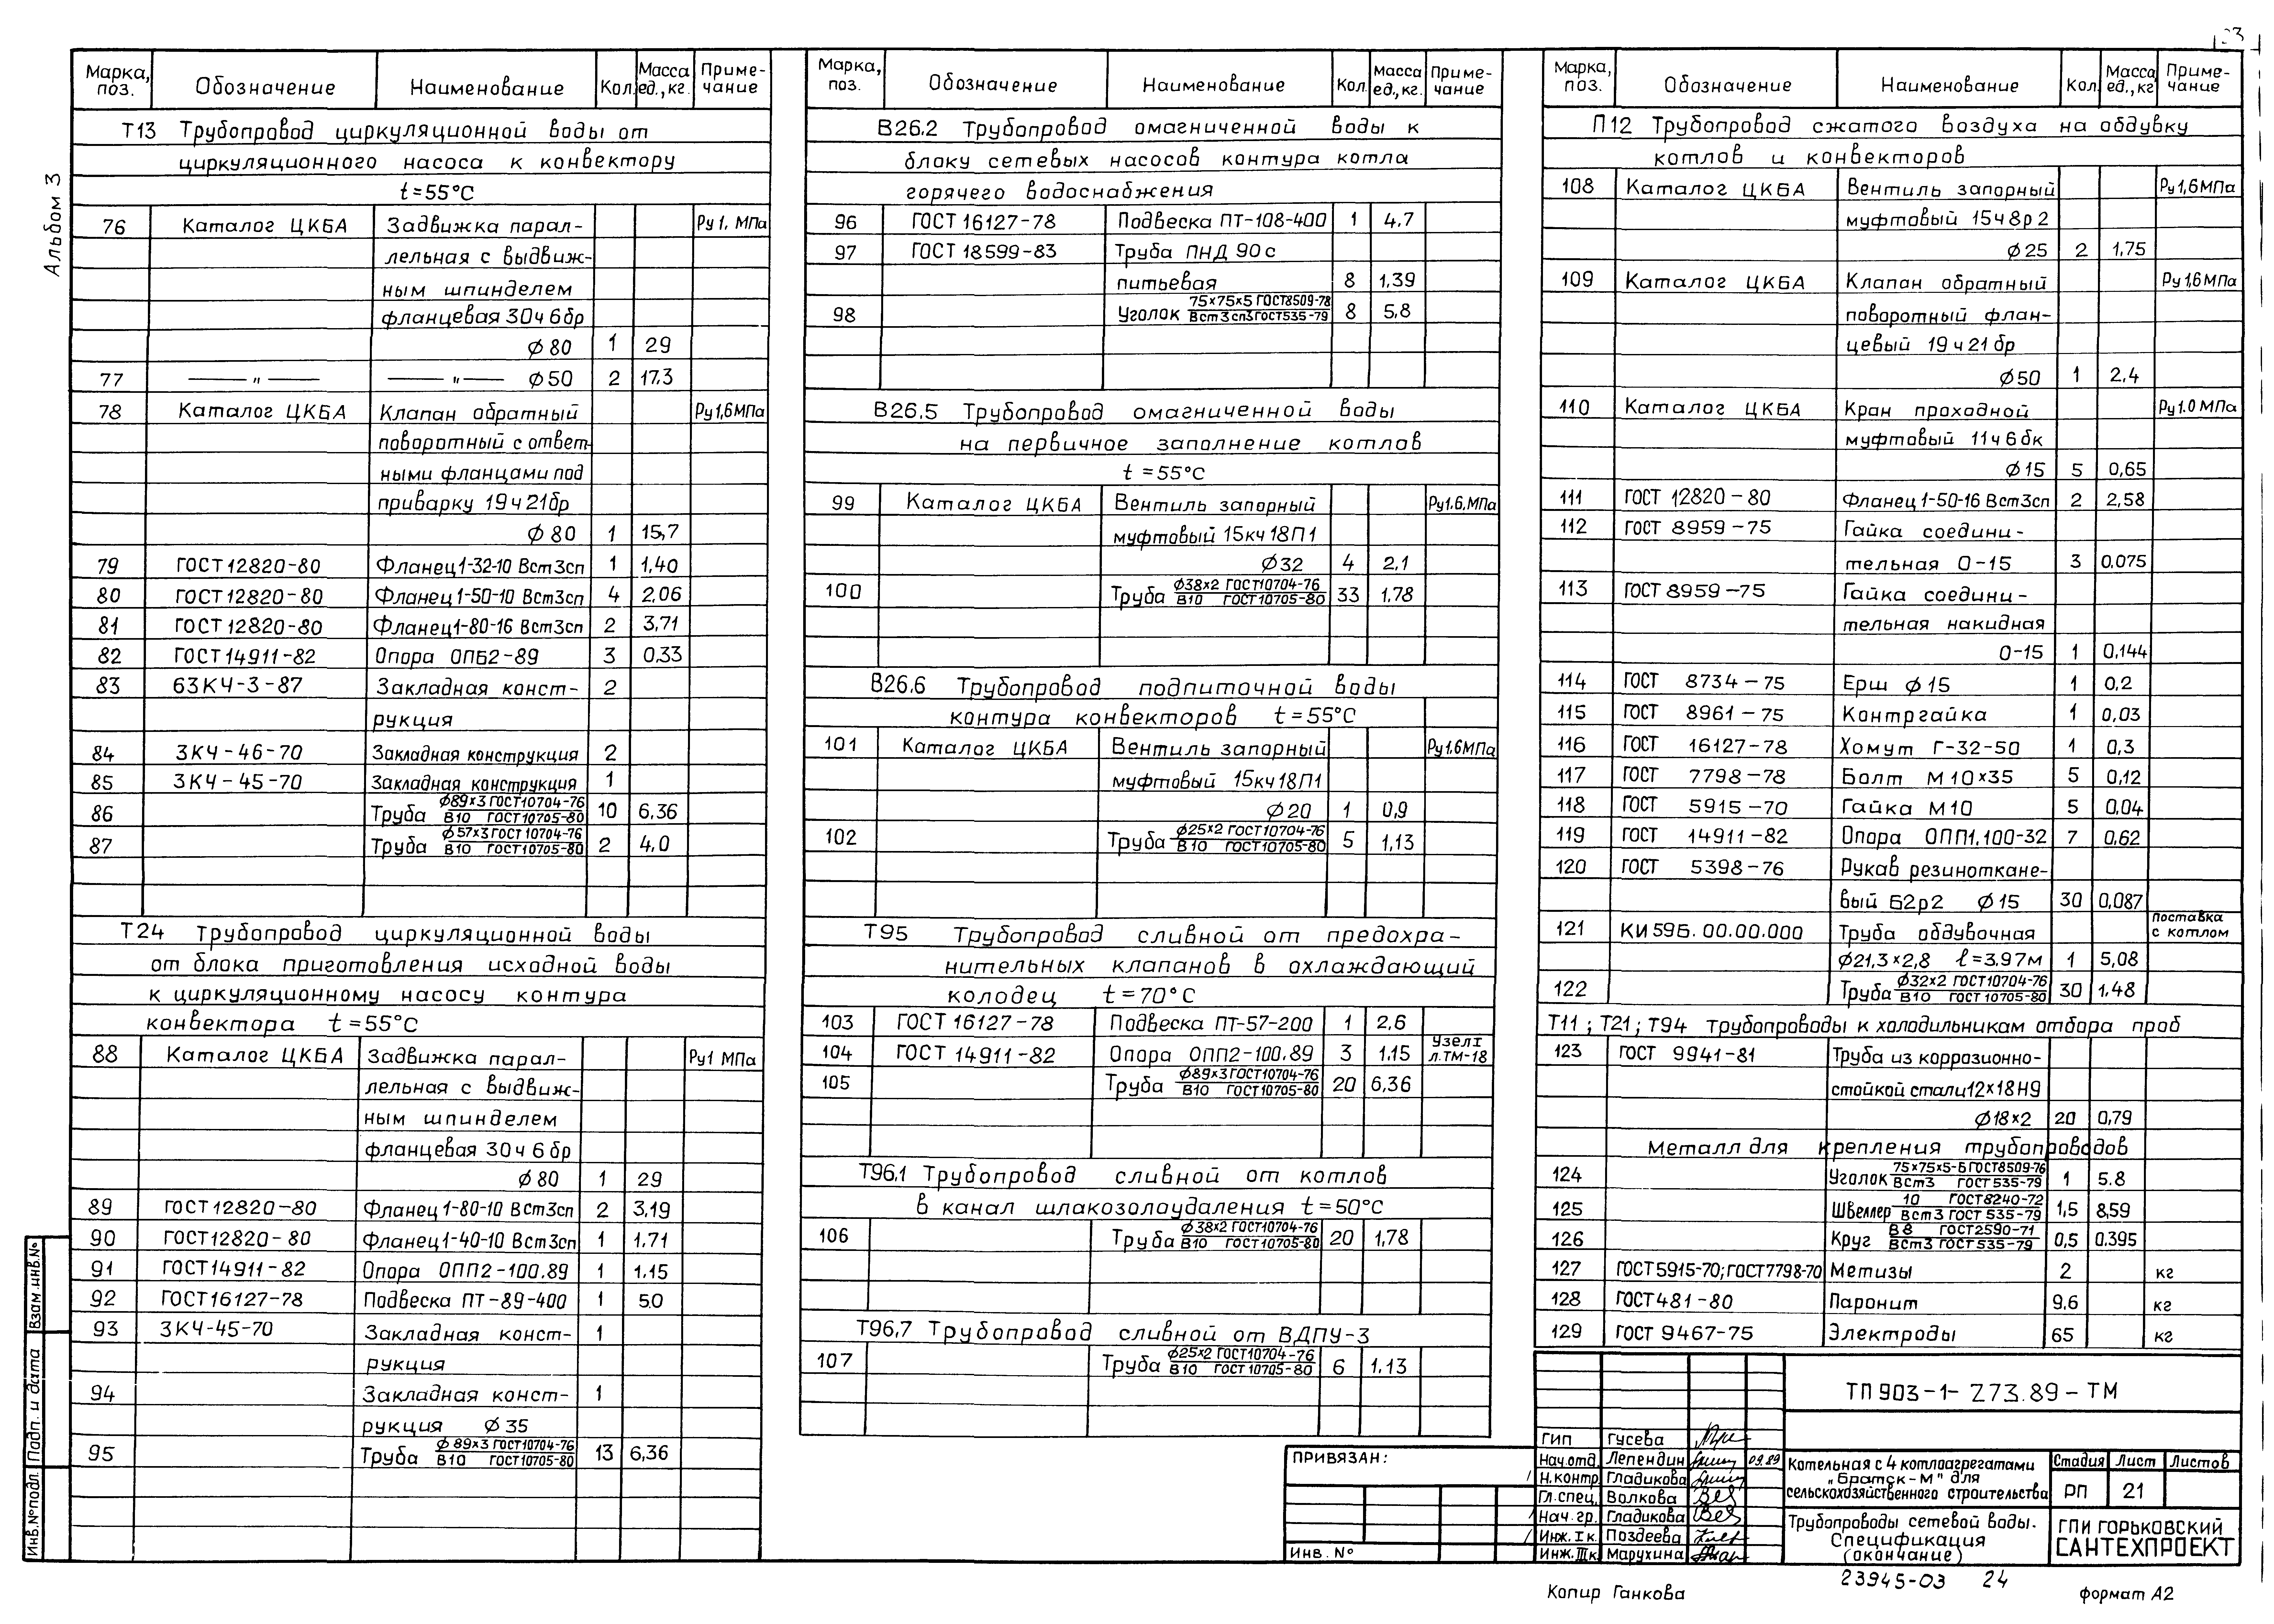 23
Альбом 3
Марка, поз. Обозначение Наименование Кол. Масса ед., кг. Приме-чание
Т13 Трубопровод циркуляционной воды от
циркуляционного насоса к конвектору
t=55°С
76 Каталог ЦКБА Задвижка парал- Ру1, МПа
лельная с выдвиж-
ным шпинделем
фланцевая 30ч6бр
ф80 1 29
77 —〃— —〃— ф50 2 17.3
78 Каталог ЦКБА Клапан обратный Ру1,6МПа
поворотный с ответ-
ными фланцами под
приварку 19ч21бр
ф80 1 15,7
79 ГОСТ12820-80 Фланец1-32-10 Вст3сп 1 1,40
80 ГОСТ12820-80 Фланец1-50-10 Вст3сп 4 2,06
81 ГОСТ12820-80 Фланец1-80-16 Вст3сп 2 3,71
82 ГОСТ14911-82 Опора ОПБ2-89 3 0,33
83 63КЧ-3-87 Закладная конст- 2
рукция
84 3КЧ-46-70 Закладная конструкция 2
85 3КЧ-45-70 Закладная конструкция 1
86 Труба ф89×3 ГОСТ10704-76 / В10 ГОСТ10705-80 10 6,36
87 Труба ф57×3 ГОСТ10704-76 / В10 ГОСТ10705-80 2 4,0
Т24 Трубопровод циркуляционной воды
от блока приготовления исходной воды
к циркуляционному насосу контура
конвектора t=55°С
88 Каталог ЦКБА Задвижка парал- Ру1 МПа
лельная с выдвиж-
ным шпинделем
фланцевая 30ч6бр
ф80 1 29
89 ГОСТ12820-80 Фланец1-80-10 Вст3сп 2 3,19
90 ГОСТ12820-80 Фланец1-40-10 Вст3сп 1 1,71
91 ГОСТ14911-82 Опора ОПП2-100.89 1 1,15
92 ГОСТ16127-78 Подвеска ПТ-89-400 1 5.0
93 3КЧ-45-70 Закладная конст- 1
рукция
94 Закладная конст- 1
рукция ф35
95 Труба ф89×3 ГОСТ10704-76 / В10 ГОСТ10705-80 13 6,36
Марка, поз. Обозначение Наименование Кол. Масса ед., кг. Приме-чание
В26.2 Трубопровод омагниченной воды к
блоку сетевых насосов контура котла
горячего водоснабжения
96 ГОСТ16127-78 Подвеска ПТ-108-400 1 4,7
97 ГОСТ18599-83 Труба ПНД 90с
питьевая 8 1,39
98 Уголок 75×75×5 ГОСТ8509-78 / Вст3сп3ГОСТ535-79 8 5,8
В26.5 Трубопровод омагниченной воды
на первичное заполнение котлов
t=55°С
99 Каталог ЦКБА Вентиль запорный Ру1.6,МПа
муфтовый 15кч18П1
ф32 4 2,1
100 Труба ф38×2 ГОСТ10704-76 / В10 ГОСТ10705-80 33 1,78
В26.6 Трубопровод подпиточной воды
контура конвекторов t=55°С
101 Каталог ЦКБА Вентиль запорный Ру1.6МПа
муфтовый 15кч18П1
ф20 1 0,9
102 Труба ф25×2 ГОСТ10704-76 / В10 ГОСТ10705-80 5 1,13
Т95 Трубопровод сливной от предохра-
нительных клапанов в охлаждающий
колодец t=70°С
103 ГОСТ16127-78 Подвеска ПТ-57-200 1 2,6
104 ГОСТ 14911-82 Опора ОПП2-100.89 3 1,15 Узел I л.ТМ-18
105 Труба ф89×3ГОСТ10704-76 / В10 ГОСТ10705-80 20 6,36
Т96.1 Трубопровод сливной от котлов
в канал шлакозолоудаления t=50°С
106 Труба ф38×2 ГОСТ10704-76 / В10 ГОСТ10705-80 20 1,78
Т96,7 Трубопровод сливной от ВДПУ-3
107 Труба ф25×2 ГОСТ10704-76 / В10 ГОСТ10705-80 6 1.13
Марка, поз. Обозначение Наименование Кол. Масса ед., кг Приме-чание
П12 Трубопровод сжатого воздуха на обдувку
котлов и конвекторов
108 Каталог ЦКБА Вентиль запорный Ру1,6МПа
муфтовый 15ч8р2
ф25 2 1,75
109 Каталог ЦКБА Клапан обратный Ру1,6МПа
поворотный флан-
цевый 19ч21бр
ф50 1 2,4
110 Каталог ЦКБА Кран проходной Ру1.0 МПа
муфтовый 11ч6бк
ф15 5 0,65
111 ГОСТ 12820-80 Фланец1-50-16 Вст3сп 2 2,58
112 ГОСТ 8959-75 Гайка соедини-
тельная О-15 3 0,075
113 ГОСТ 8959-75 Гайка соедини-
тельная накидная
О-15 1 0,144
114 ГОСТ 8734-75 Ерш ф15 1 0,2
115 ГОСТ 8961-75 Контргайка 1 0,03
116 ГОСТ 16127-78 Хомут Г-32-50 1 0,3
117 ГОСТ 7798-78 Болт М10×35 5 0,12
118 ГОСТ 5915-70 Гайка М10 5 0,04
119 ГОСТ 14911-82 Опора ОПП1.100-32 7 0,62
120 ГОСТ 5398-76 Рукав резиноткане-
вый Б2р2 ф15 30 0,087
121 КИ59Б.00.00.000 Труба обдувочная поставка с котлом
ф21,3×2,8 ℓ=3.97м 1 5,08
122 Труба ф32×2 ГОСТ10704-76 / В10 ГОСТ10705-80 30 1,48
Т11; Т21; Т94 трубопроводы к холодильникам отбора проб
123 ГОСТ 9941-81 Труба из коррозионно-
стойкой стали12×18Н9
ф18×2 20 0,79
Металл для крепления трубопроводов
124 Уголок 75×75×5-Б ГОСТ8509-76 / Вст3 ГОСТ535-79 1 5.8
125 Швеллер 10 ГОСТ8240-72 / Вст3 ГОСТ 535-79 1,5 8,59
126 Круг В8 ГОСТ2590-71 / Вст3 ГОСТ535-79 0,5 0.395
127 ГОСТ5915-70;ГОСТ7798-70 Метизы 2 кг
128 ГОСТ481-80 Паронит 9,6 кг
129 ГОСТ 9467-75 Электроды 65 кг
Взам.инв.№
Подп. и дата
Инв.№подл.
ПРИВЯЗАН:
Инв. №
ТП 903-1-273.89-ТМ
ГИП Гусева
Нач.отд. Лепендин 09.89
Н.контр. Гладикова
Гл.спец. Волкова
Нач.гр. Гладикова
Инж.Iк. Поздеева
Инж.IIIк. Марухина
Котельная с 4 котлоагрегатами
„Братск-М" для
сельскохозяйственного строительства
Стадия Лист Листов
РП 21
Трубопроводы сетевой воды.
Спецификация
(окончание)
ГПИ ГОРЬКОВСКИЙ
САНТЕХПРОЕКТ
23945-03 24
Копир Ганкова
формат А2